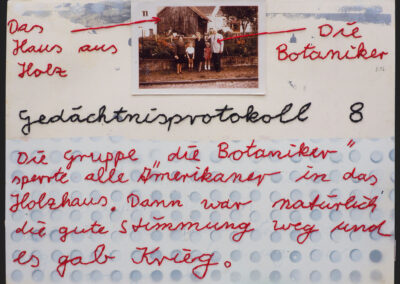 Das
Haus aus
Holz
Die
Botaniker
Gedächtnisprotokoll 8
Die Gruppe „die Botaniker"
sperrte alle Amerikaner in das
Holzhaus. Dann war natürlich
die gute Stimmung weg und
es gab Krieg.